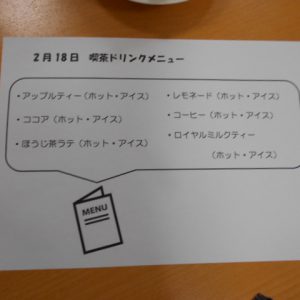 2月18日 喫茶ドリンクメニュー
・アップルティー(ホット・アイス)
・ココア(ホット・アイス)
・ほうじ茶ラテ(ホット・アイス)
・レモネード(ホット・アイス)
・コーヒー(ホット・アイス)
・ロイヤルミルクティー
(ホット・アイス)
MENU